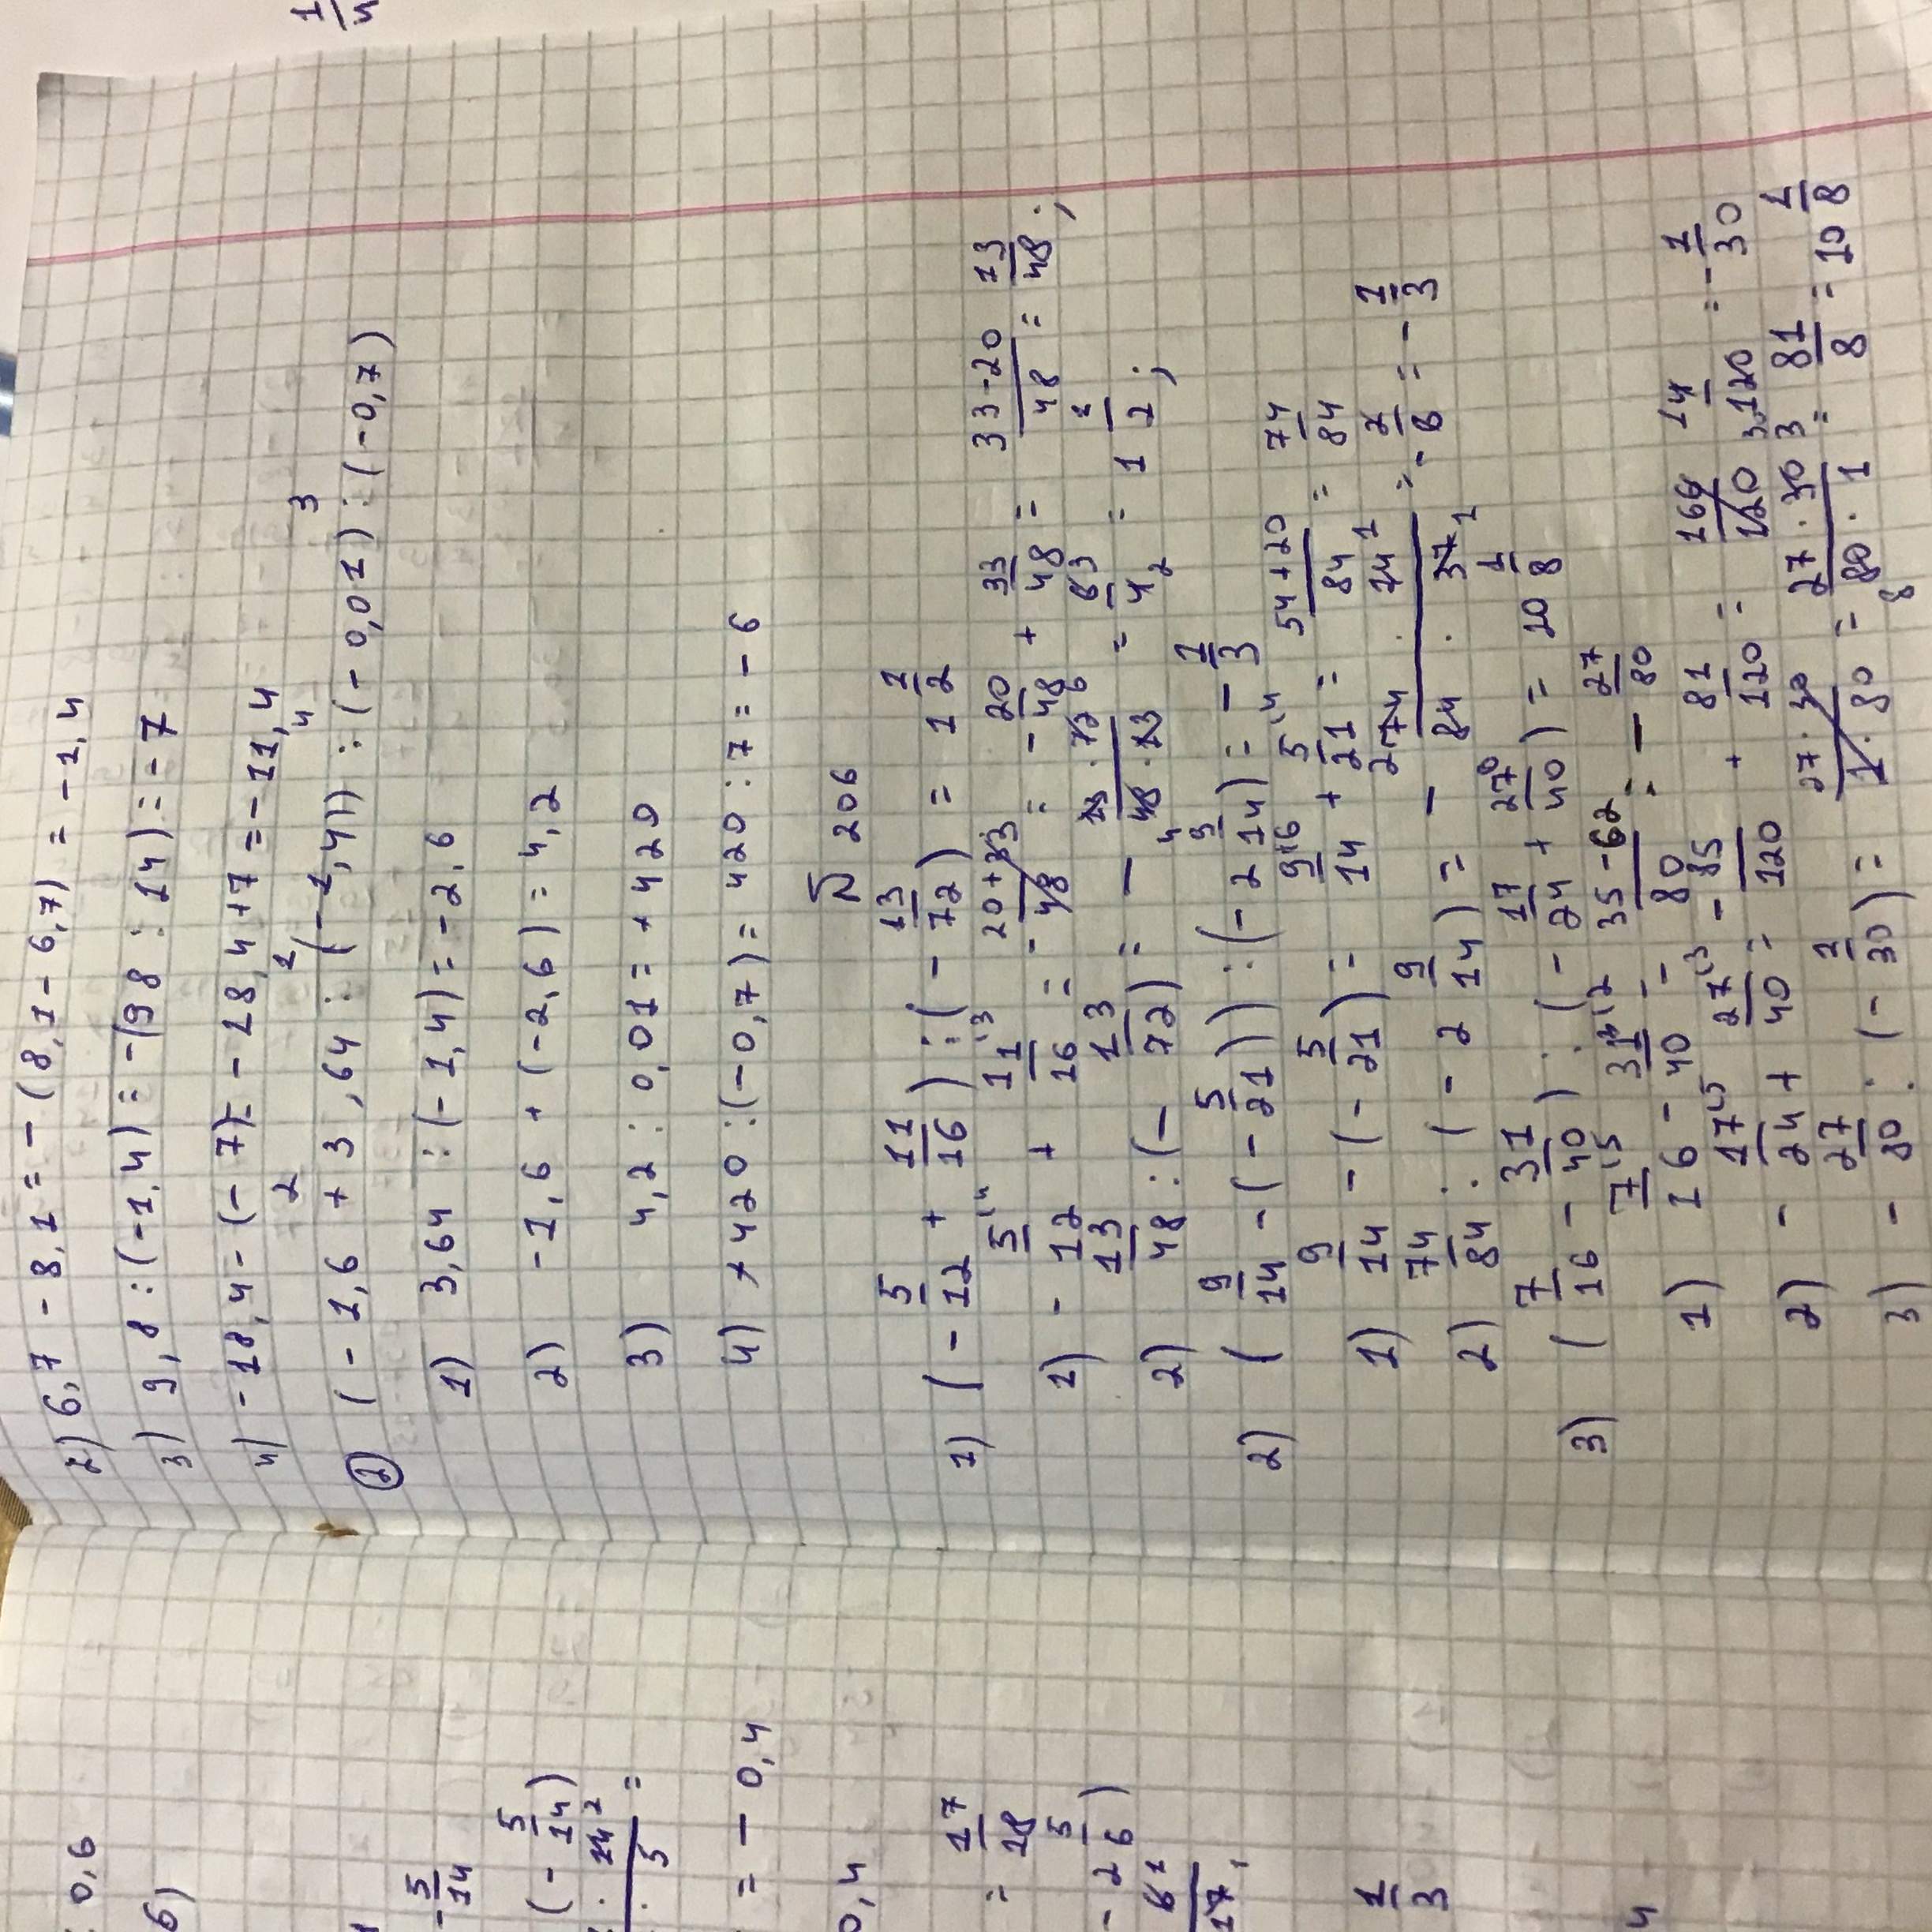 2) 6,7 - 8,1 = - (8,1 - 6,7) = - 1,4
3) 9,8 : (-1,4) = -(98 : 14) = - 7
4) -18,4 - (- 7) = - 18,4 + 7 = - 11,4
2 1 4 3
② (- 1,6 + 3,64 : (- 1,4)) : (- 0,001) : (- 0,7)
1) 3,64 : (- 1,4) = - 2,6
2) -1,6 + (-2,6) = 4,2
3) 4,2 : 0,01 = + 420
4) + 420 : (- 0,7) = 420 : 7 = - 6
№ 206
1) (- 5/12 + 11/16) : (- 13/72) = 1 1/2
1) - 5/12 + 11/16 = - 20+33/48 = - 20/48 + 33/48 = 33-20/48 = 13/48 ;
2) 13/48 : (- 13/72) = - 13 · 72/48 · 13 = 6/4 = 1 1/2 ;
2) (9/14 - (- 5/21)) : (- 2 3/14) = - 1/3
1) 9/14 - (- 5/21) = 9/14 + 5/21 = 54+20/84 = 74/84
2) 74/84 : (- 2 9/14) = - 74 · 14/84 · 37 = - 2/6 = - 1/3
3) (7/16 - 31/40) : (- 17/24 + 27/40) = 10 1/8
1) 7/16 - 31/40 = 35-62/80 = - 27/80
2) - 17/24 + 27/40 = - 85 + 81/120 = 14/120 = - 1/30
3) - 27/80 : (- 1/30) = 27 · 30/1 · 80 = 27 · 30/80 · 1 = 81/8 = 10 1/8
0,6
6)
- 5/14
(- 5/14)
5 =
= - 0,4
0,4
= 17/18
- 2 5/6)
17
1/3
4
1/4